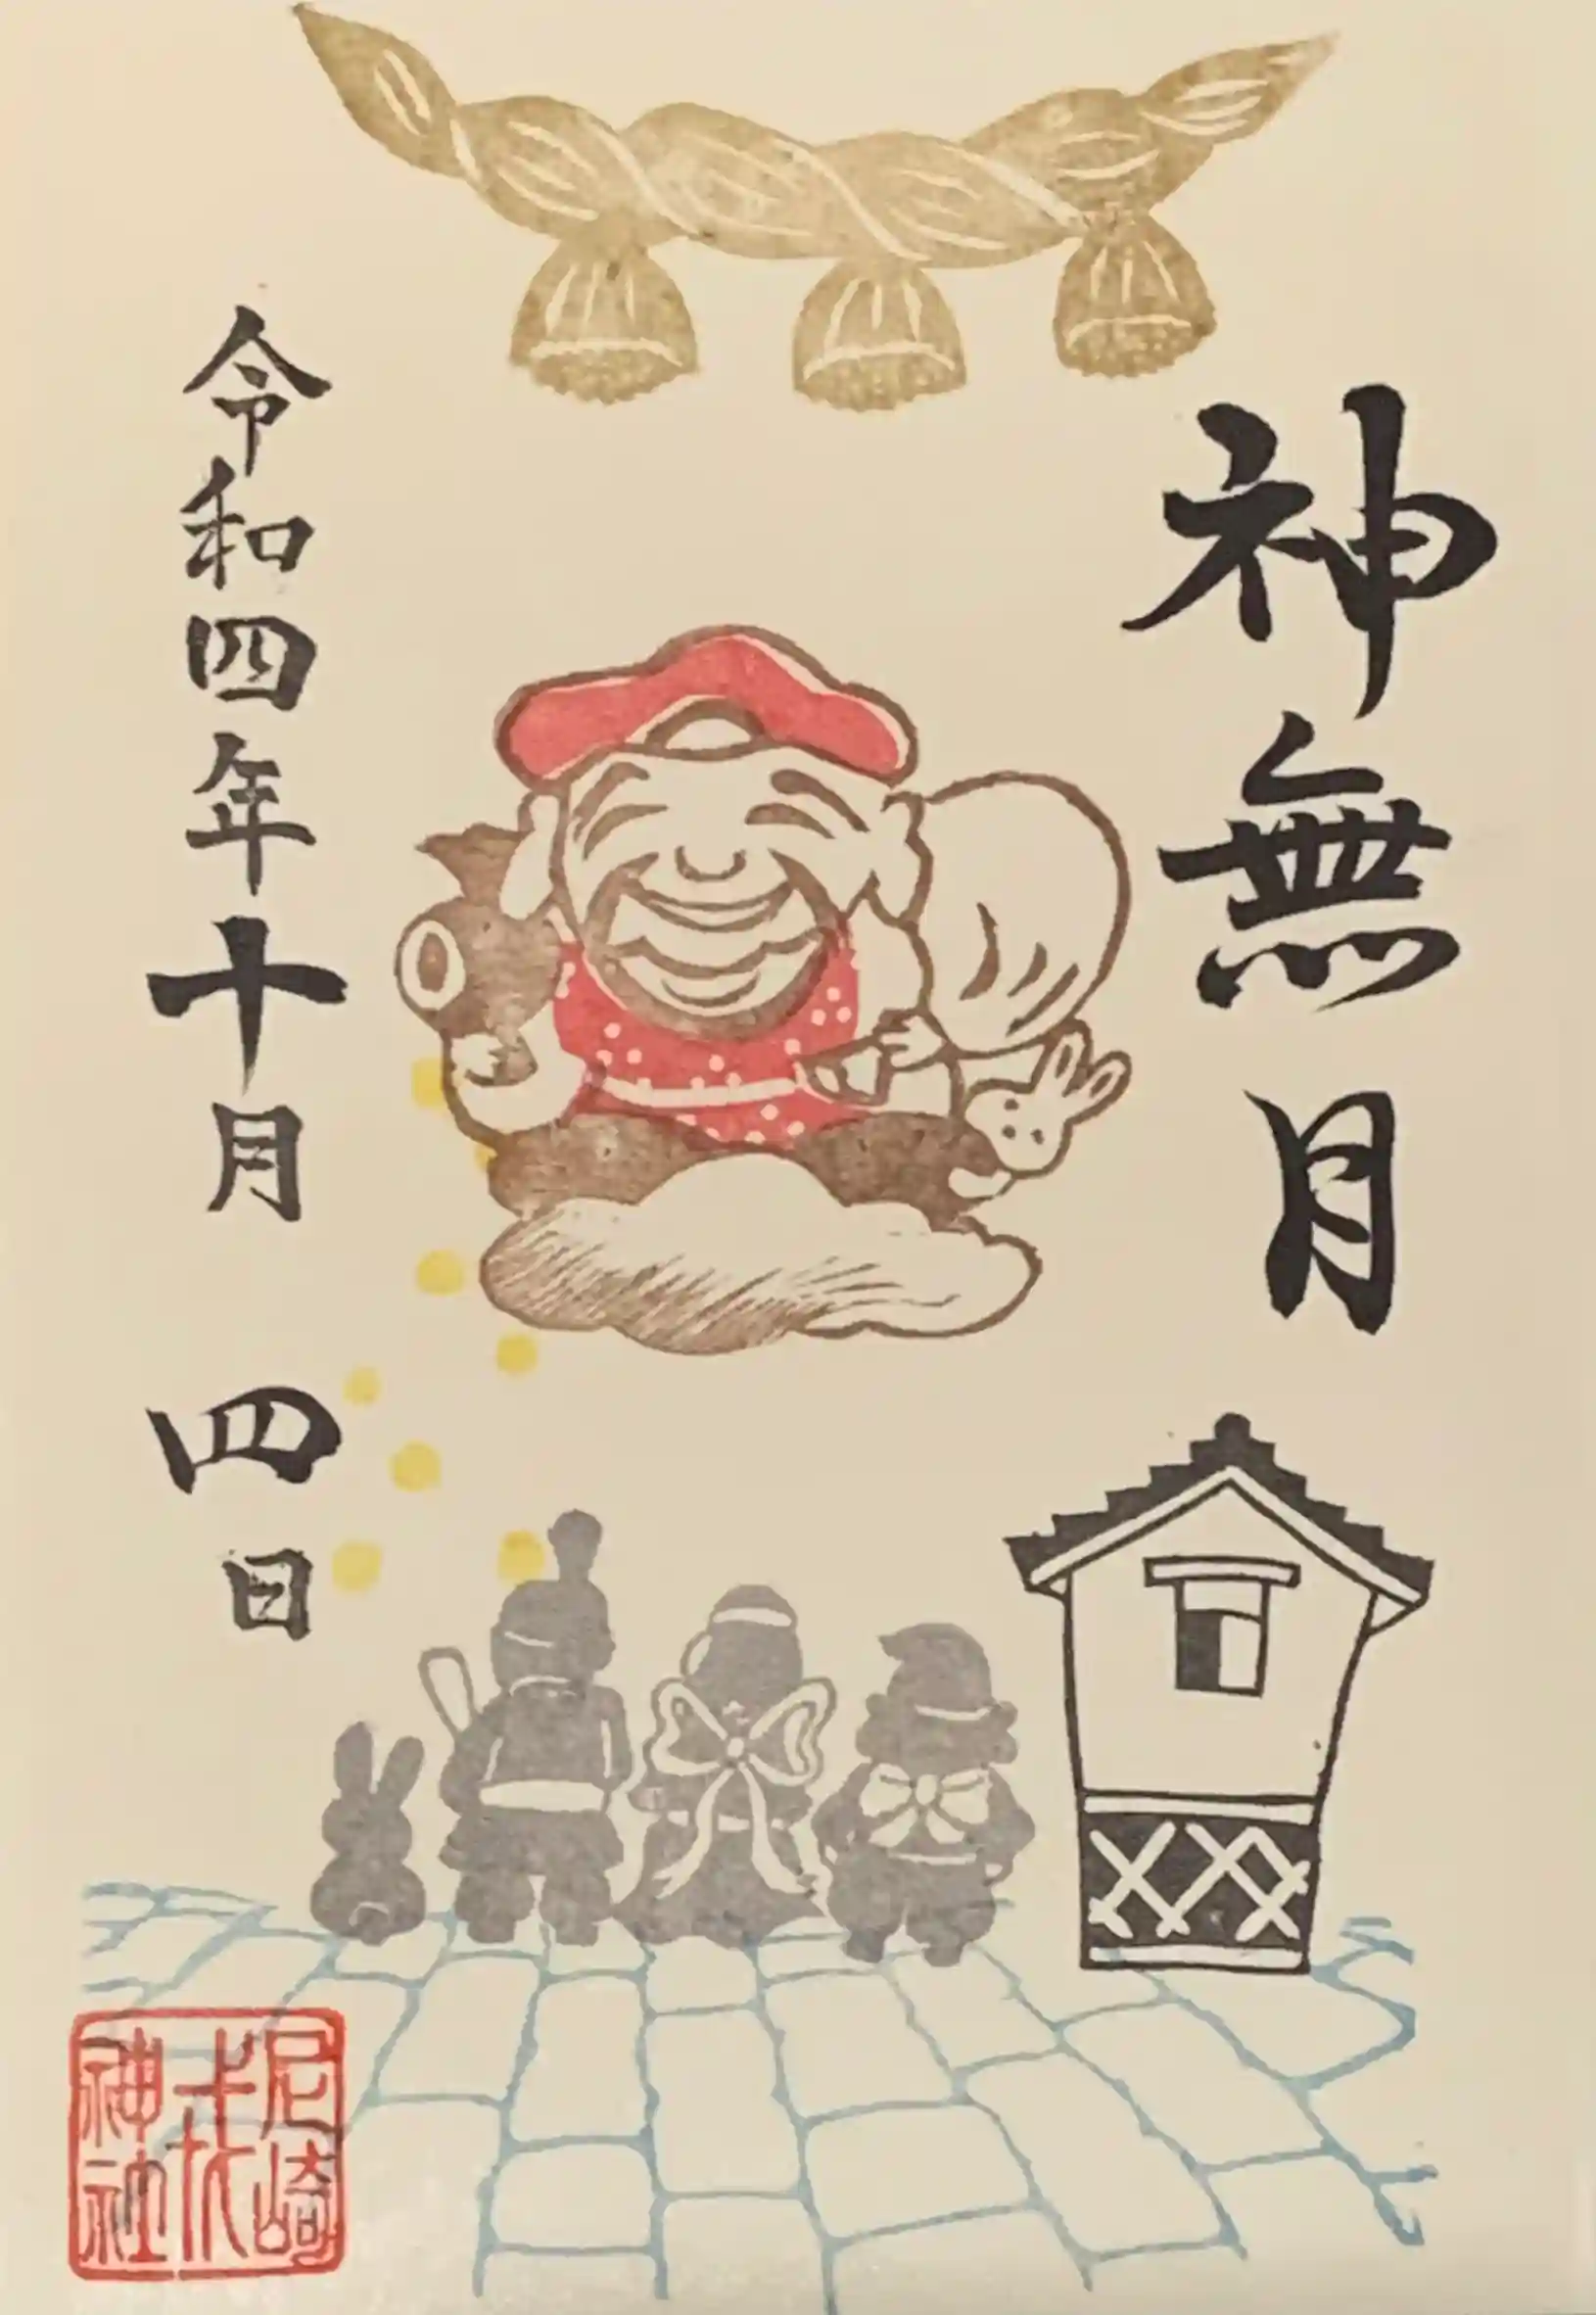 神無月
令和四年十月 四日
尼崎
えびす
神社